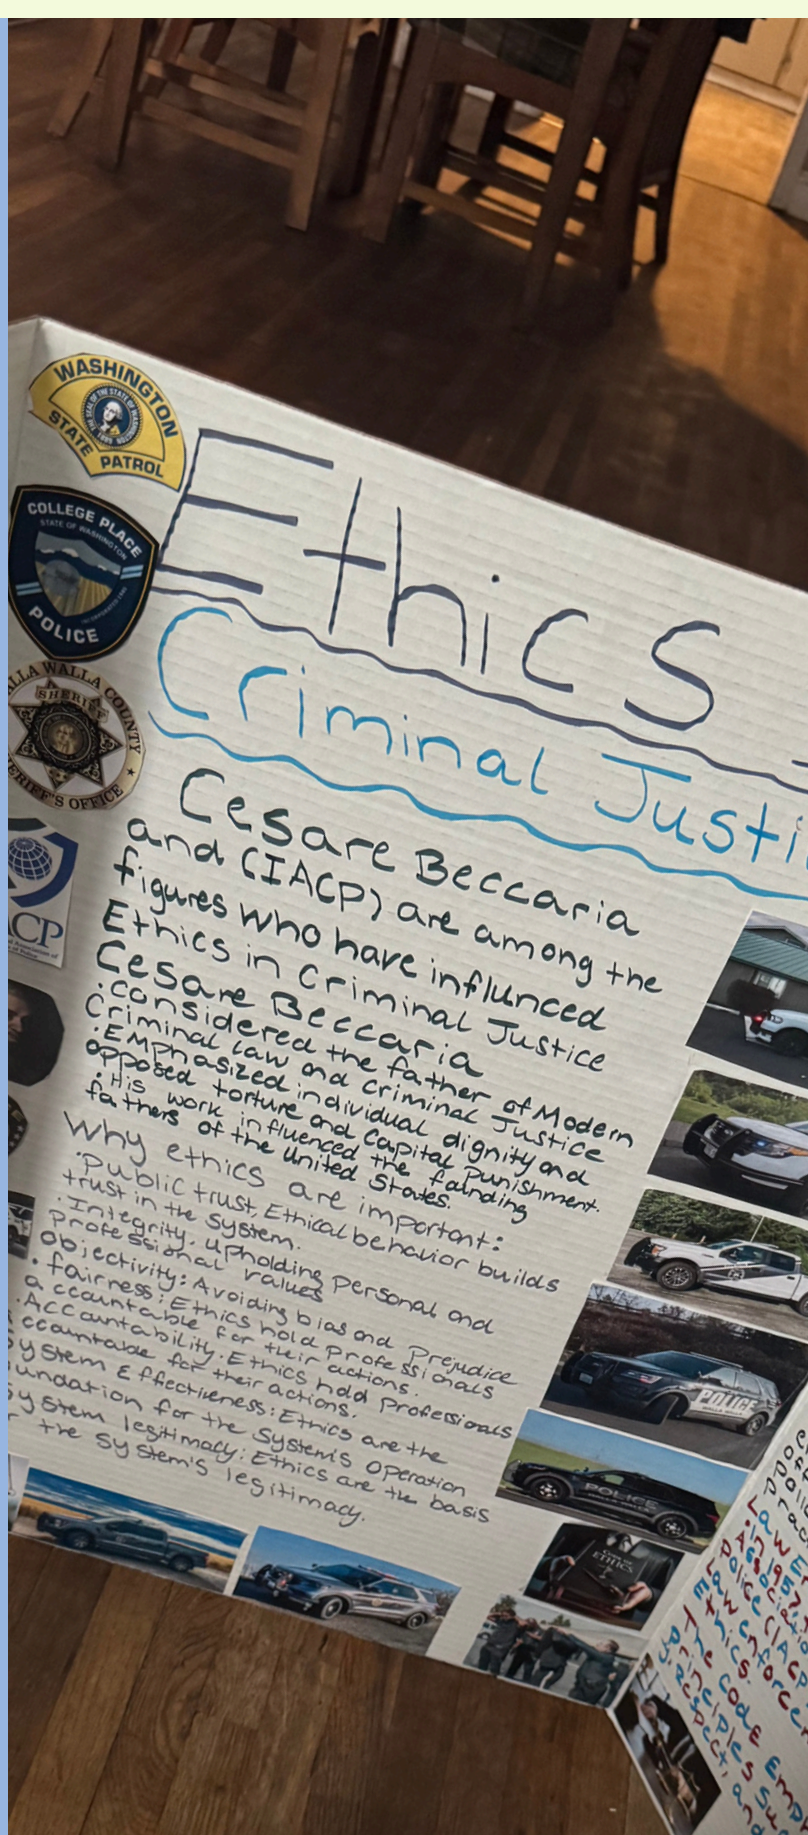 WASHINGTON
STATE PATROL
COLLEGE PLACE
STATE OF WASHINGTON
POLICE
WALLA COUNTY
SHERIFF
SHERIFF'S OFFICE
Ethics
Criminal Justi
Cesare Beccaria
and (IACP) are among the
figures who have influnced
Ethics in Criminal Justice
Cesare Beccaria
·considered the father of Modern
Criminal law and criminal Justice
·Emphasized individual dignity and
opposed torture and Capital Punishment.
·His work influenced the faunding
fathers of the United States.
Why ethics are important:
·Public trust, Ethical behavior builds
trust in the system.
·Integrity. upholding personal and
professional values
objectivity: Avoiding bias and prejudice
·fairness: Ethics hold professionals
accountable for their actions.
·Accountability. Ethics hold Professionals
ccountable for their actions.
ystem Effectiveness: Ethics are the
undation for the system's operation
ystem legitimacy: Ethics are the basis
r the system's legitimacy.
CP
POLICE
POLICE
ETHICS
Law E
·In 1957, T
Associatio
Police (IACP
Law enforcem
Ethics.
The code Emp
principles su
respect, and